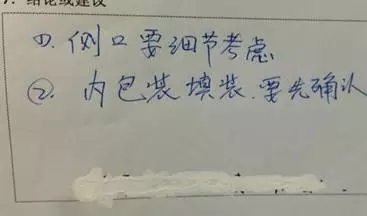 7. 结论或建议
①. 侧口要细节考虑
②. 内包装填装.要先确认